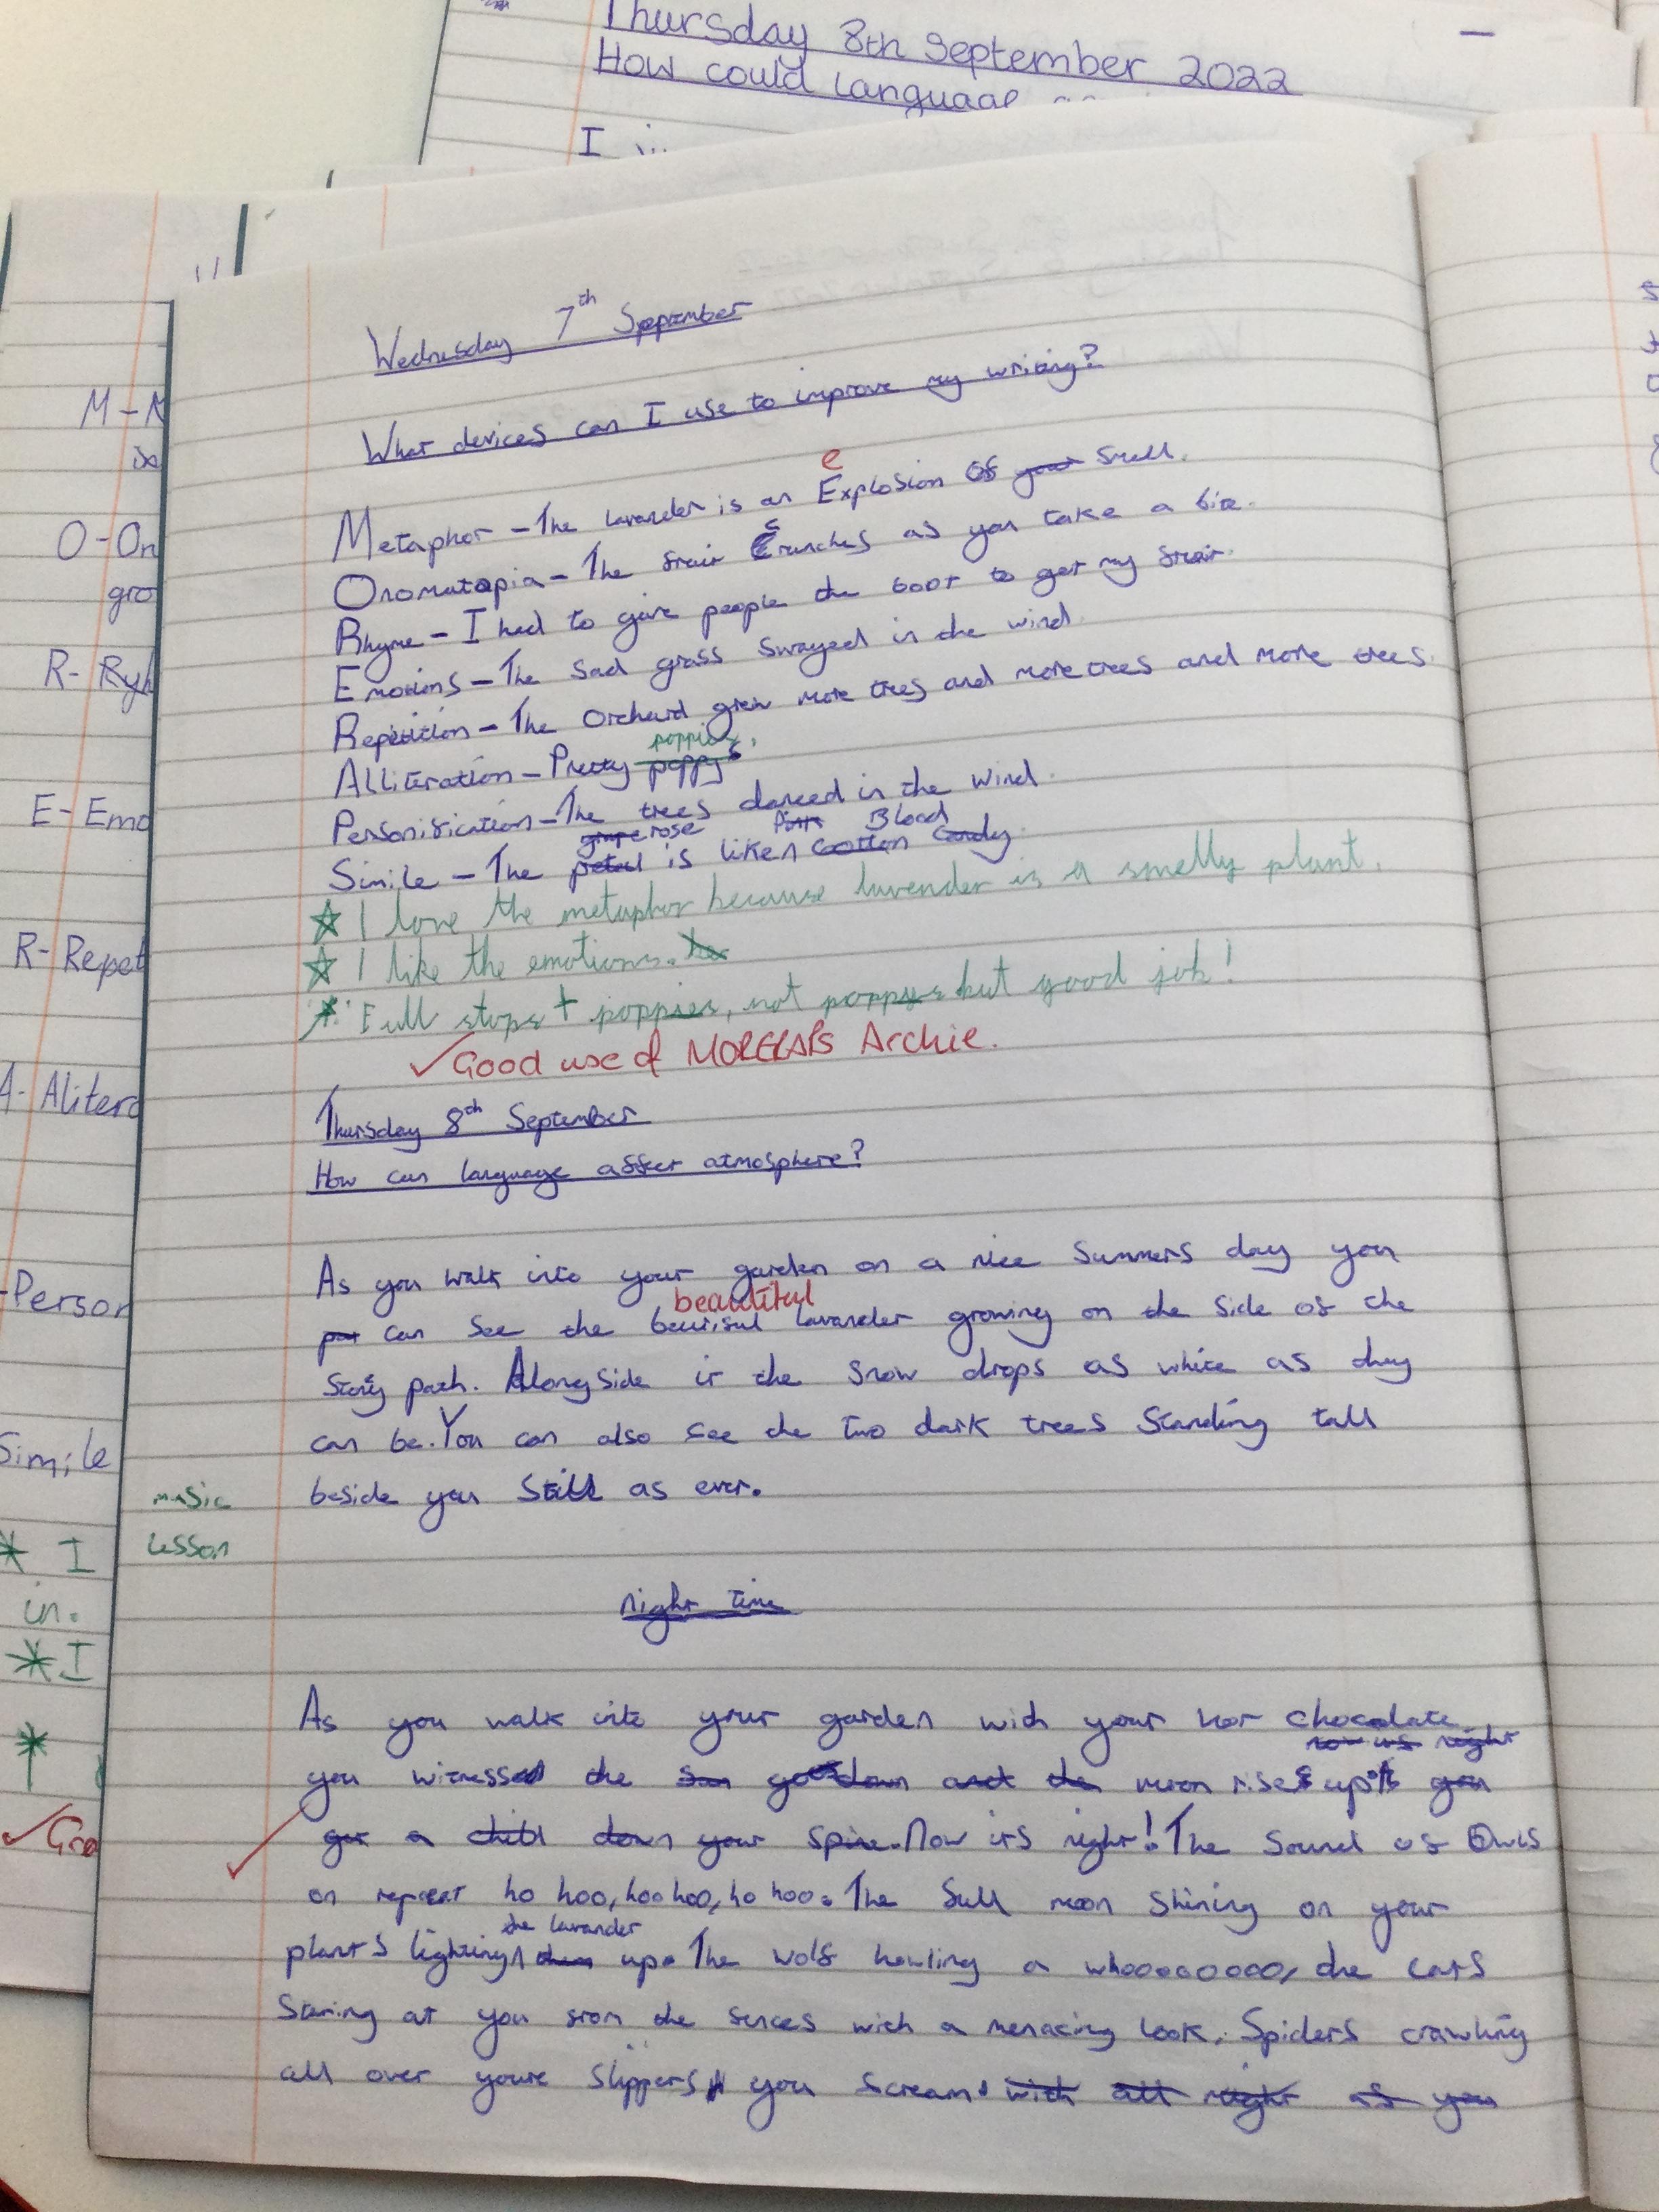 Thursday 8th September 2022
How could language
I
Wednesday 7th September
What devices can I use to improve my writing?
e
Metaphor - The lavander is an Explosion of your smell.
Onomatopia - The fruit Crunches as you take a bite.
Rhyme - I had to give people the boot to get my fruit.
Emotions - The sad grass swayed in the wind.
Repetition - The orchard grew more trees and more trees and more trees.
poppies,
Alliteration - Pretty poppys
Personification - The trees danced in the wind.
grape rose Pink Blood
Simile - The petal is like cotton candy.
I love the metaphor because lavender is a smelly plant.
I like the emotions.
Full stops + poppies, not poppys but good job!
✓Good use of MORERAPS Archie.
Thursday 8th September
How can language affect atmosphere?
As you walk into your garden on a nice summers day you
beautiful
can see the beutiful lavander growing on the side of the
stony path. Alongside it the snow drops as white as they
can be. You can also see the two dark trees standing tall
beside you still as ever.
music
lesson
night time
As you walk into your garden with your hot chocolate
now its night
you witnessed the sun go down and the moon rises up you
get a child down your spine. Now its night! The sound of Owls
on repeat ho hoo, hoo hoo, ho hoo. The full moon shining on your
the lavander
plants lighting them up. The wolf howling a whooooooooo, the cats
Staring at you from the fences with a menacing look. Spiders crawling
all over youre slippers you scream with all night as you
M-M
O-On
gro
R- Ryh
E-Emo
R-Repet
A-Alitera
-Person
Simile
* I
in.
* I
✓Gre